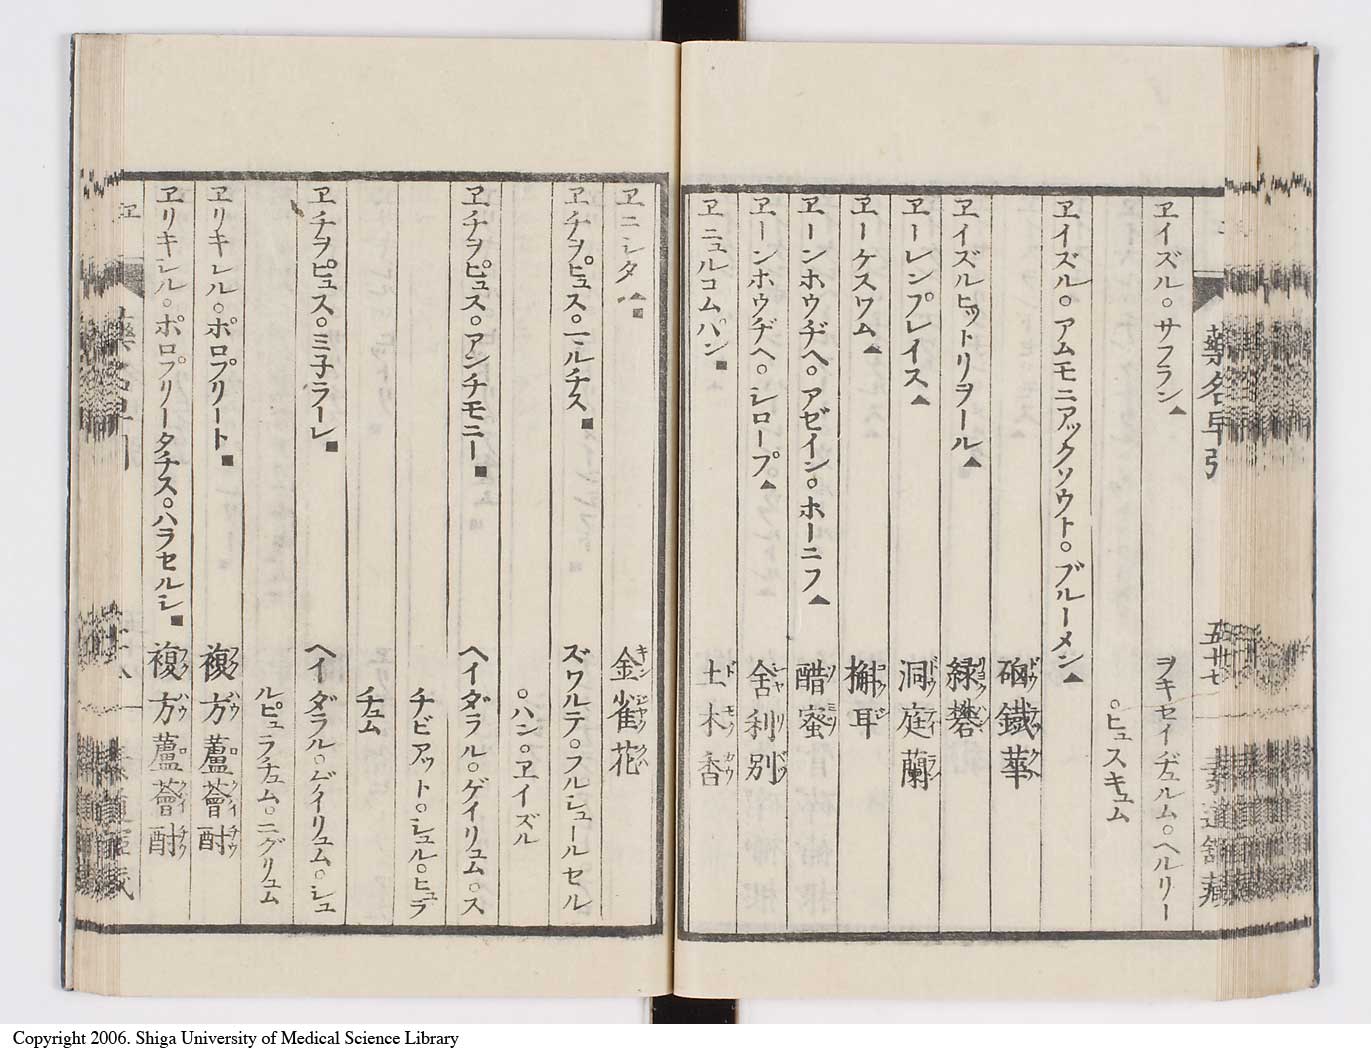 藥名早引 五十七
ヱイズル。サフラン▲ ヲキセイヂュルム。ヘルリー
。ヒュスキュム
ヱイズル。アムモニアックソウト。ブルーメン▲ 硇鐵華
ヱイズルヒットリヲール▲ 緑礬
ヱーレンプレイス▲ 洞庭蘭
ヱーケスワム▲ 檞耳
ヱーンホウヂヘ。アゼイン。ホーニフ▲ 醋蜜
ヱーンホウヂヘ。シロープ▲ 舍利別
ヱニュルコムパン■ 土木香
ヱニシタ▲■ 金雀花
ヱチヲピュス。ニルチス■ ズワルテ。フルシュールセル
。ハン。ヱイズル
ヱチヲピュス。アンチモニー■ ヘイダラル。ゲイリュム。ス
チビアット。シュル。ヒュラ
チュム
ヱチヲピュス。ミ子ラーレ■ ヘイダラル。ゲイリュム。シュ
ルピュラチュム。ニグリュム
ヱリキシル。ポロプリート■ 複方蘆薈酎
ヱリキシル。ポロプリータチス。ハラセルシ■ 複方蘆薈酎
ヱ